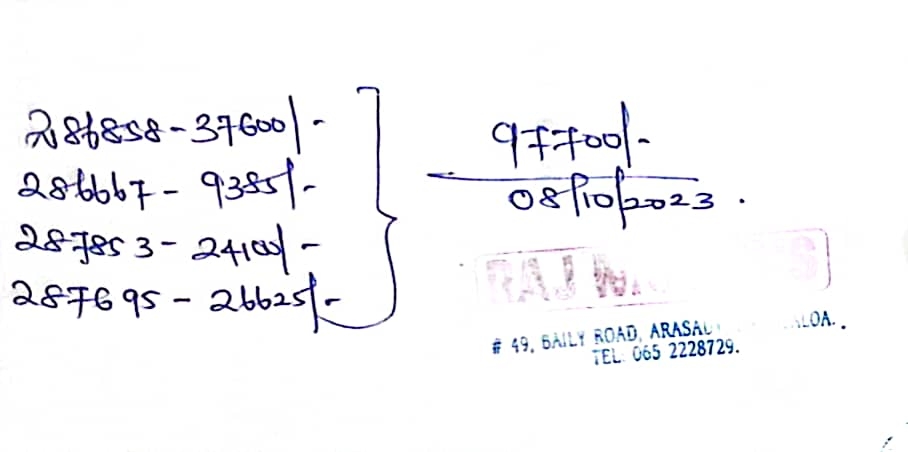 286858 - 37600/-
286667 - 9385/-
287853 - 24100/-
287695 - 26625/-
97700/-
08/10/2023.
RAJ
# 49, BAILY ROAD,
TEL: 065 2228729.